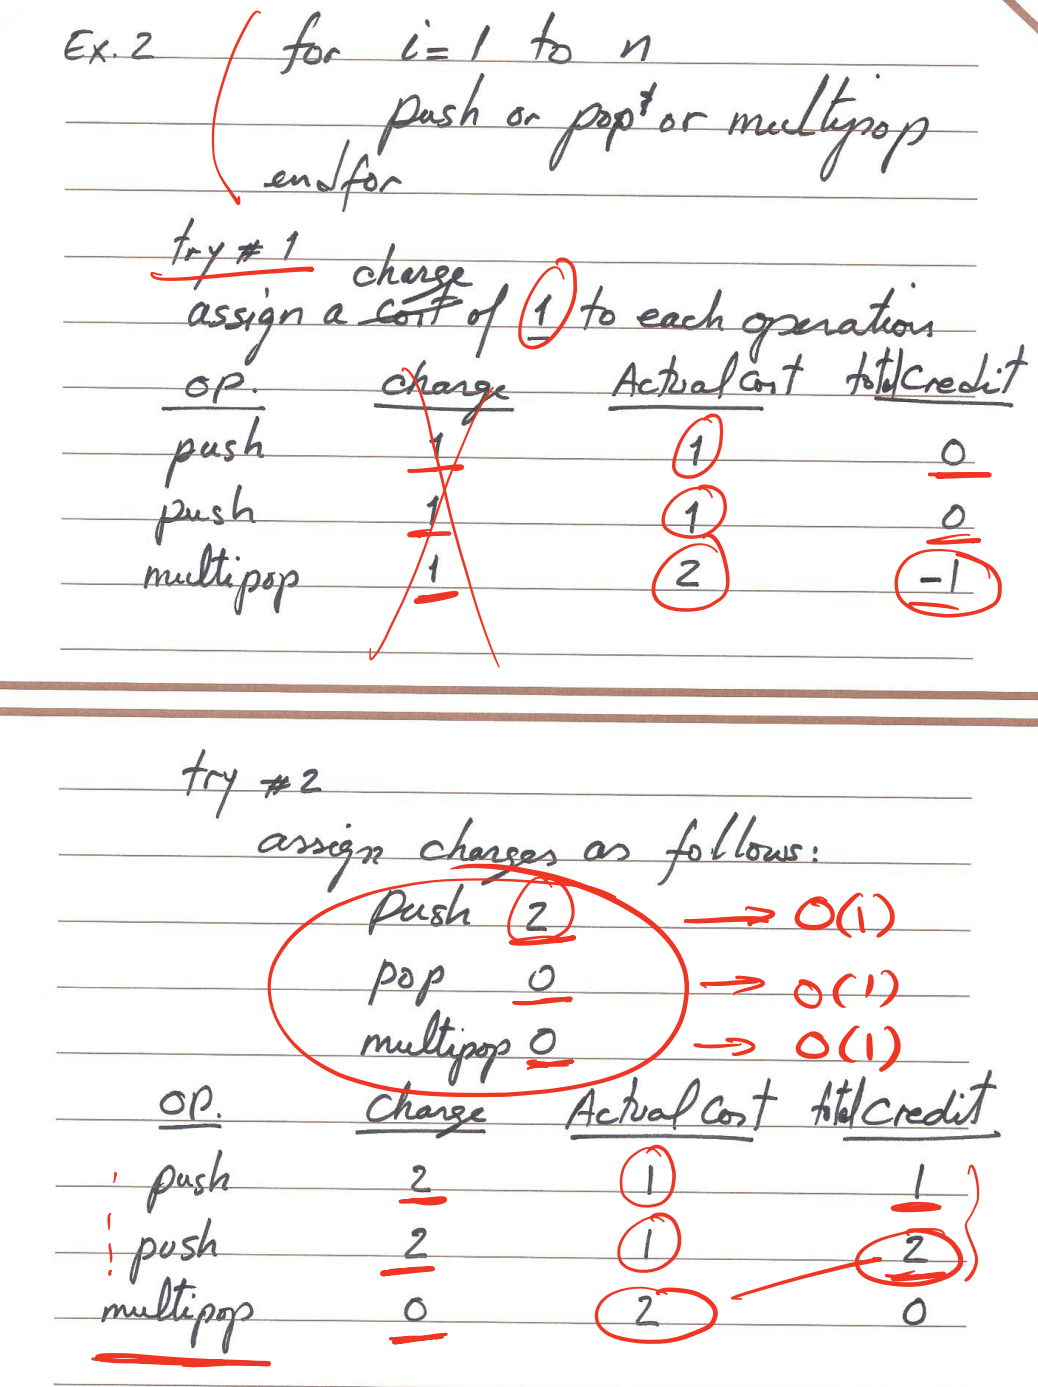 Ex. 2 for i=1 to n
push or pop or multipop
endfor
try # 1
charge
assign a cost of 1 to each operation
op. charge Actual Cost total Credit
push 1 1 0
push 1 1 0
multipop 1 2 -1
try #2
assign charges as follows:
Push 2 → O(1)
pop 0 → O(1)
multipop 0 → O(1)
op. Charge Actual Cost total Credit
push 2 1 1
push 2 1 2
multipop 0 2 0